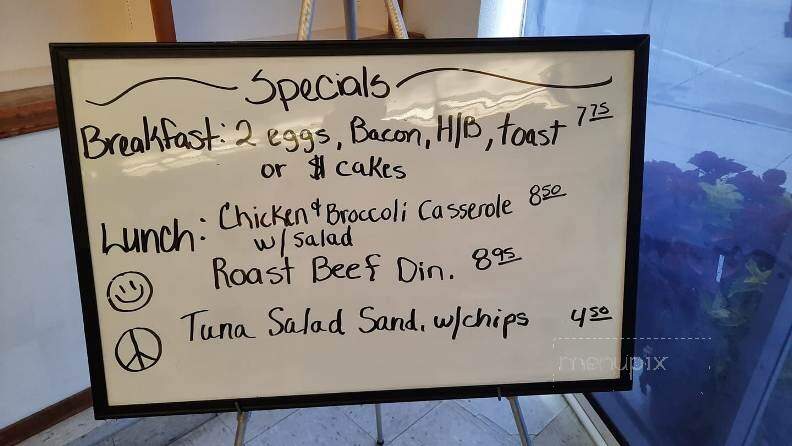 Specials
Breakfast: 2 eggs, Bacon, H/B, toast 7 75
or $ cakes
Lunch: Chicken & Broccoli Casserole 8 50
w/ salad
Roast Beef Din. 8 95
Tuna Salad Sand. w/chips 4 50
menupix